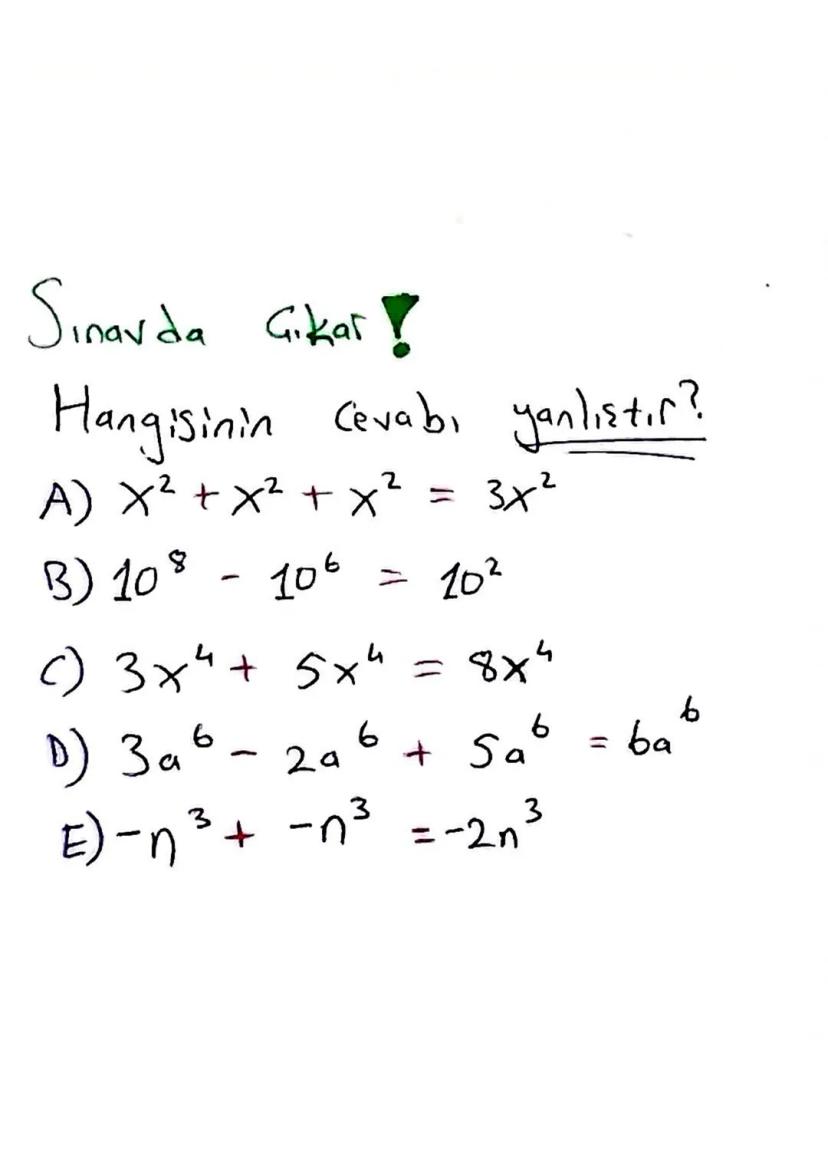 Sınavda Çıkar!
Hangisinin Cevabı yanlıştır?
A) x² + x² + x² = 3x²
B) 10⁸ - 10⁶ = 10²
C) 3x⁴ + 5x⁴ = 8x⁴
D) 3a⁶ - 2a⁶ + 5a⁶ = 6a⁶
E) -n³ + -n³ = -2n³